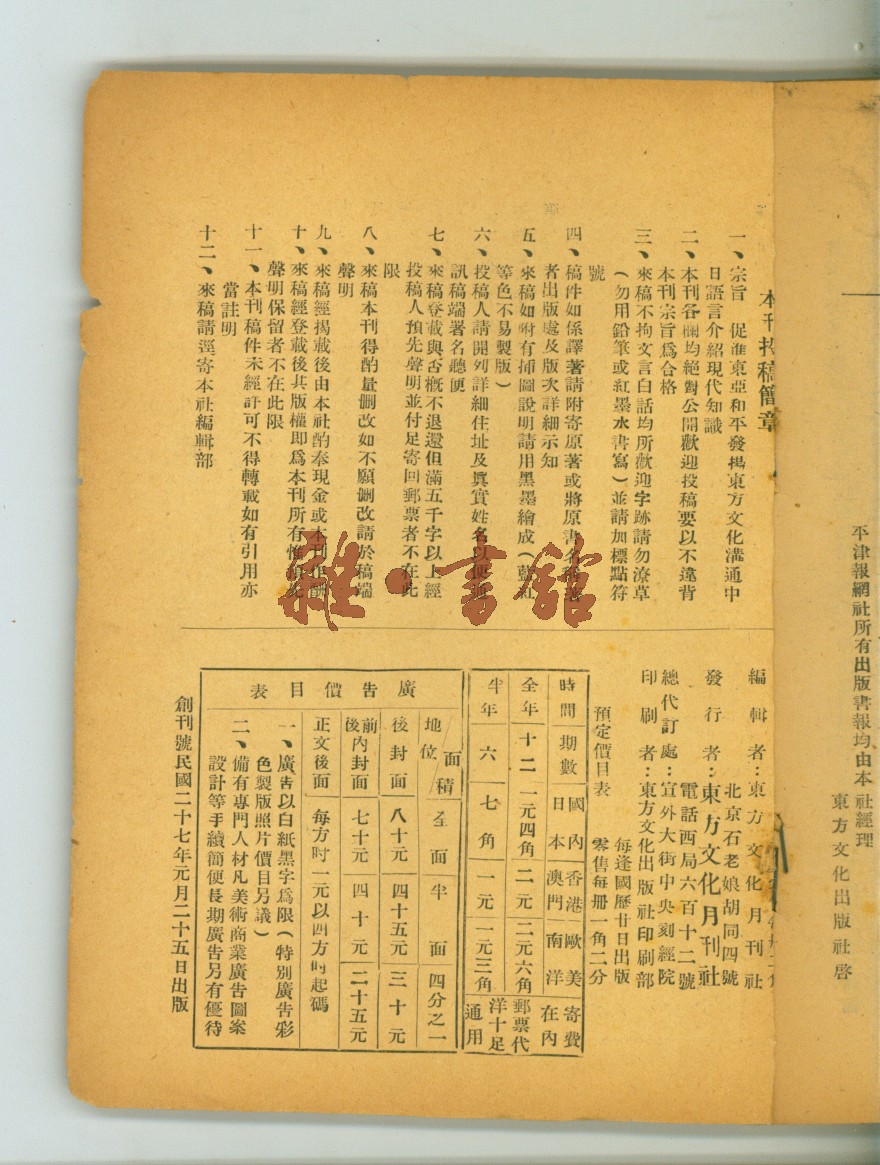 平津報網社所有出版書報均由本社經理
東方文化出版社啓
本刊投稿簡章
一、宗旨 促進東亞和平發揚東方文化溝通中
日語言介紹現代知識
二、本刊各欄均絕對公開歡迎投稿要以不違背
本刊宗旨爲合格
三、來稿不拘文言白話均所歡迎字跡請勿潦草
(勿用鉛筆或紅墨水書寫)並請加標點符
號
四、稿件如係譯著請附寄原著或將原書名稱著
者出版處及版次詳細示知
五、來稿如附有揷圖說明請用黑墨繪成(藍紅
等色不易製版)
六、投稿人請開列詳細住址及眞實姓名以便通
訊稿端署名聽便
七、來稿登載與否槪不退還但滿五千字以上經
投稿人預先聲明並付足寄回郵票者不在此
限
八、來稿本刊得酌量刪改如不願刪改請於稿端
聲明
九、來稿經揭載後由本社酌奉現金或本刊作酬
十、來稿經登載後其版權即爲本刊所有惟預先
聲明保留者不在此限
十一、本刊稿件未經許可不得轉載如有引用亦
當註明
十二、來稿請逕寄本社編輯部
雜·書館
編輯者:東方文化月刊社
北京石老娘胡同四號
發行者:東方文化月刊社
電話西局六百十二號
總代訂處:宣外大街中央刻經院
印刷者:東方文化出版社印刷部
每逢國歷廿日出版
預定價目表 零售每册一角二分
時間 期數 國內日本 香港澳門 歐美南洋 寄費在內
全年 十二 一元四角 二元 二元六角 郵票代
半年 六 七角 一元 一元三角 洋十足通用
廣告價目表
面積 地位 全面 半面 四分之一
後封面 八十元 四十五元 三十元
前後內封面 七十元 四十元 二十五元
正文後面 每方吋一元以四方吋起碼
一、廣告以白紙黑字爲限(特別廣告彩
色製版照片價目另議)
二、備有專門人材凡美術商業廣告圖案
設計等手續簡便長期廣告另有優待
創刊號民國二十七年元月二十五日出版